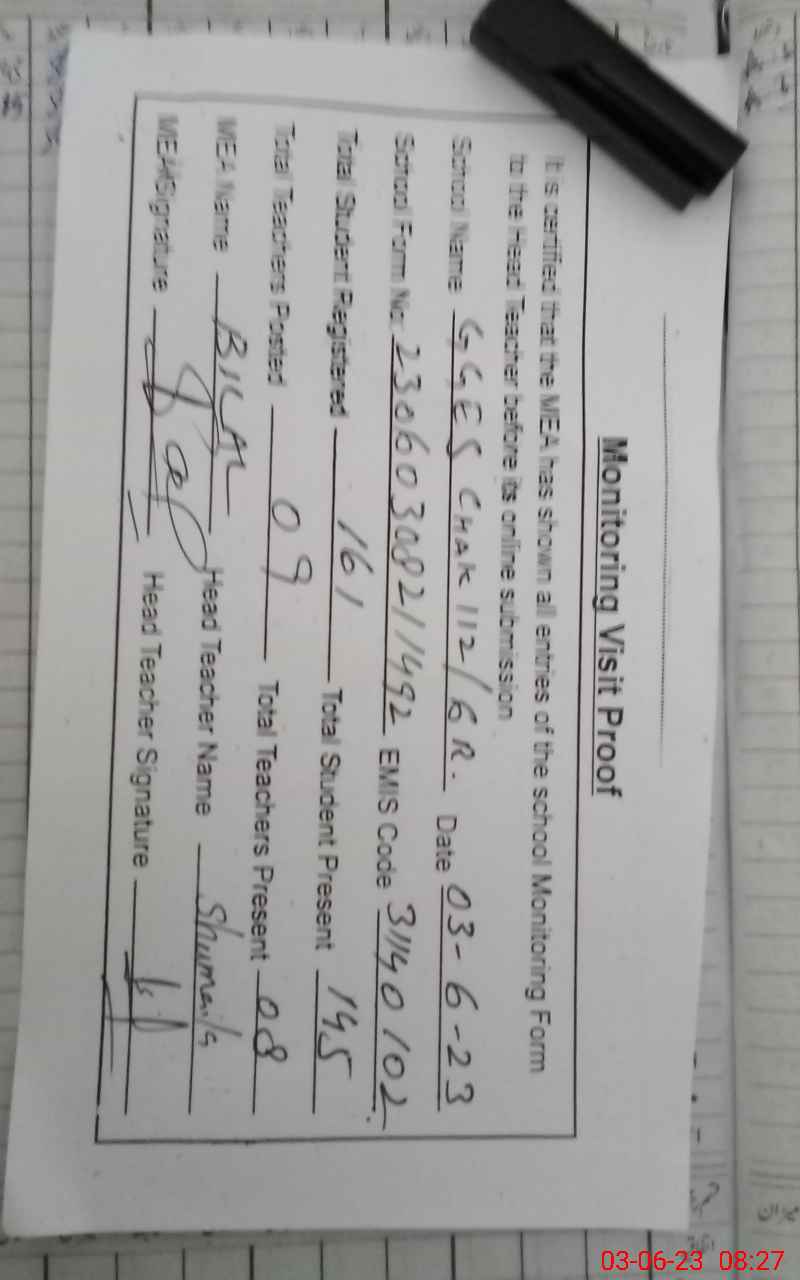 Monitoring Visit Proof
It is certified that the MEA has shown all entries of the school Monitoring Form
to the Head Teacher before its online submission
School Name GGES CHAK 112/6R. Date 03-6-23
School Form No: 23060308211492 EMIS Code 31140102.
Total Student Registered 161 Total Student Present 145
Total Teachers Posted 09 Total Teachers Present 08
MEA Name BILAL Head Teacher Name Shumaila
MEA Signature Head Teacher Signature
03-06-23 08:27